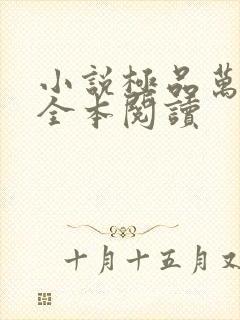 小說極品萬
全本閱讀
十月十五月又